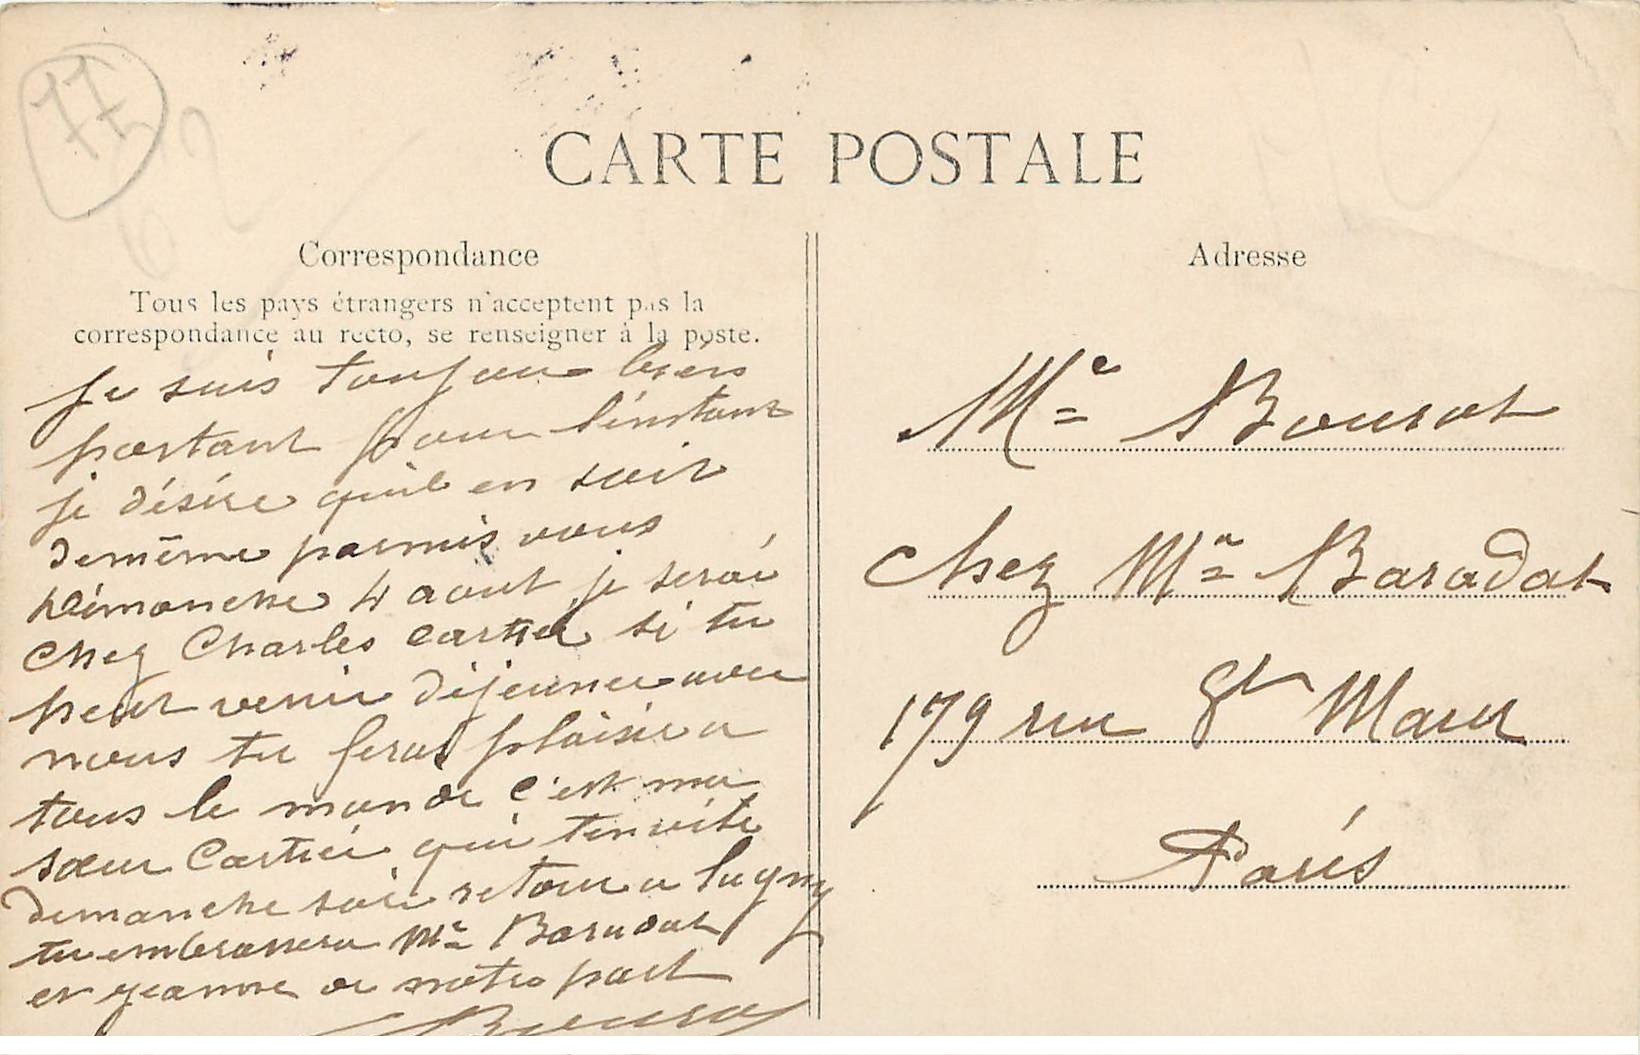 77
62
CARTE POSTALE
Correspondance
Tous les pays étrangers n'acceptent pas la
correspondance au recto, se renseigner à la poste.
Je suis toujour bien
portant pour l'instant
je désire quil en soit
demême parmis vous
Dimanche 4 aout je serai
chez Charles Cartier si tu
peut venir déjeuner avec
nous tu feras plaisir a
tous le monde c'est ma
sœur Cartier qui t'invite
dimanche soir retour a Lugny
tu embrassera Me Baradat
et Jeanne de notre part
Boursot
Adresse
Me Boursot
chez Me Baradat
179 rue St Maur
Paris